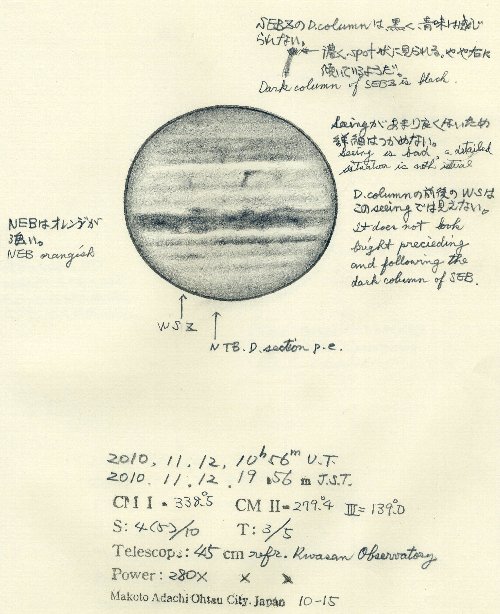 SEBZのD.columnは、黒く、青味は感じ
られない。
濃く、spot状に見られる。やや右に
傾いているようだ。
Dark column of SEBZ is black.
Seeingがあまり良くないため
詳細はつかめない。
Seeing is bad, a detailed
situation is not
D.columnの前後のWSは
このseeingでは見えない。
It does not look
bright preciding
and following the
dark column of SEB.
NEBはオレンヂが
強い。
NEB orangish
WSZ
NTB.D.section p.e.
2010. 11. 12. 10h56m U.T.
2010. 11. 12. 19.56 m J.S.T.
CM I = 338.°5 CM II = 279.°4 III = 139.°0
S: 4(5)/10 T: 3/5
Telescop: 45 cm refr. Kwasan Observatory
Power: 280× × ×
Makoto Adachi Ohtsu City. Japan 10-15